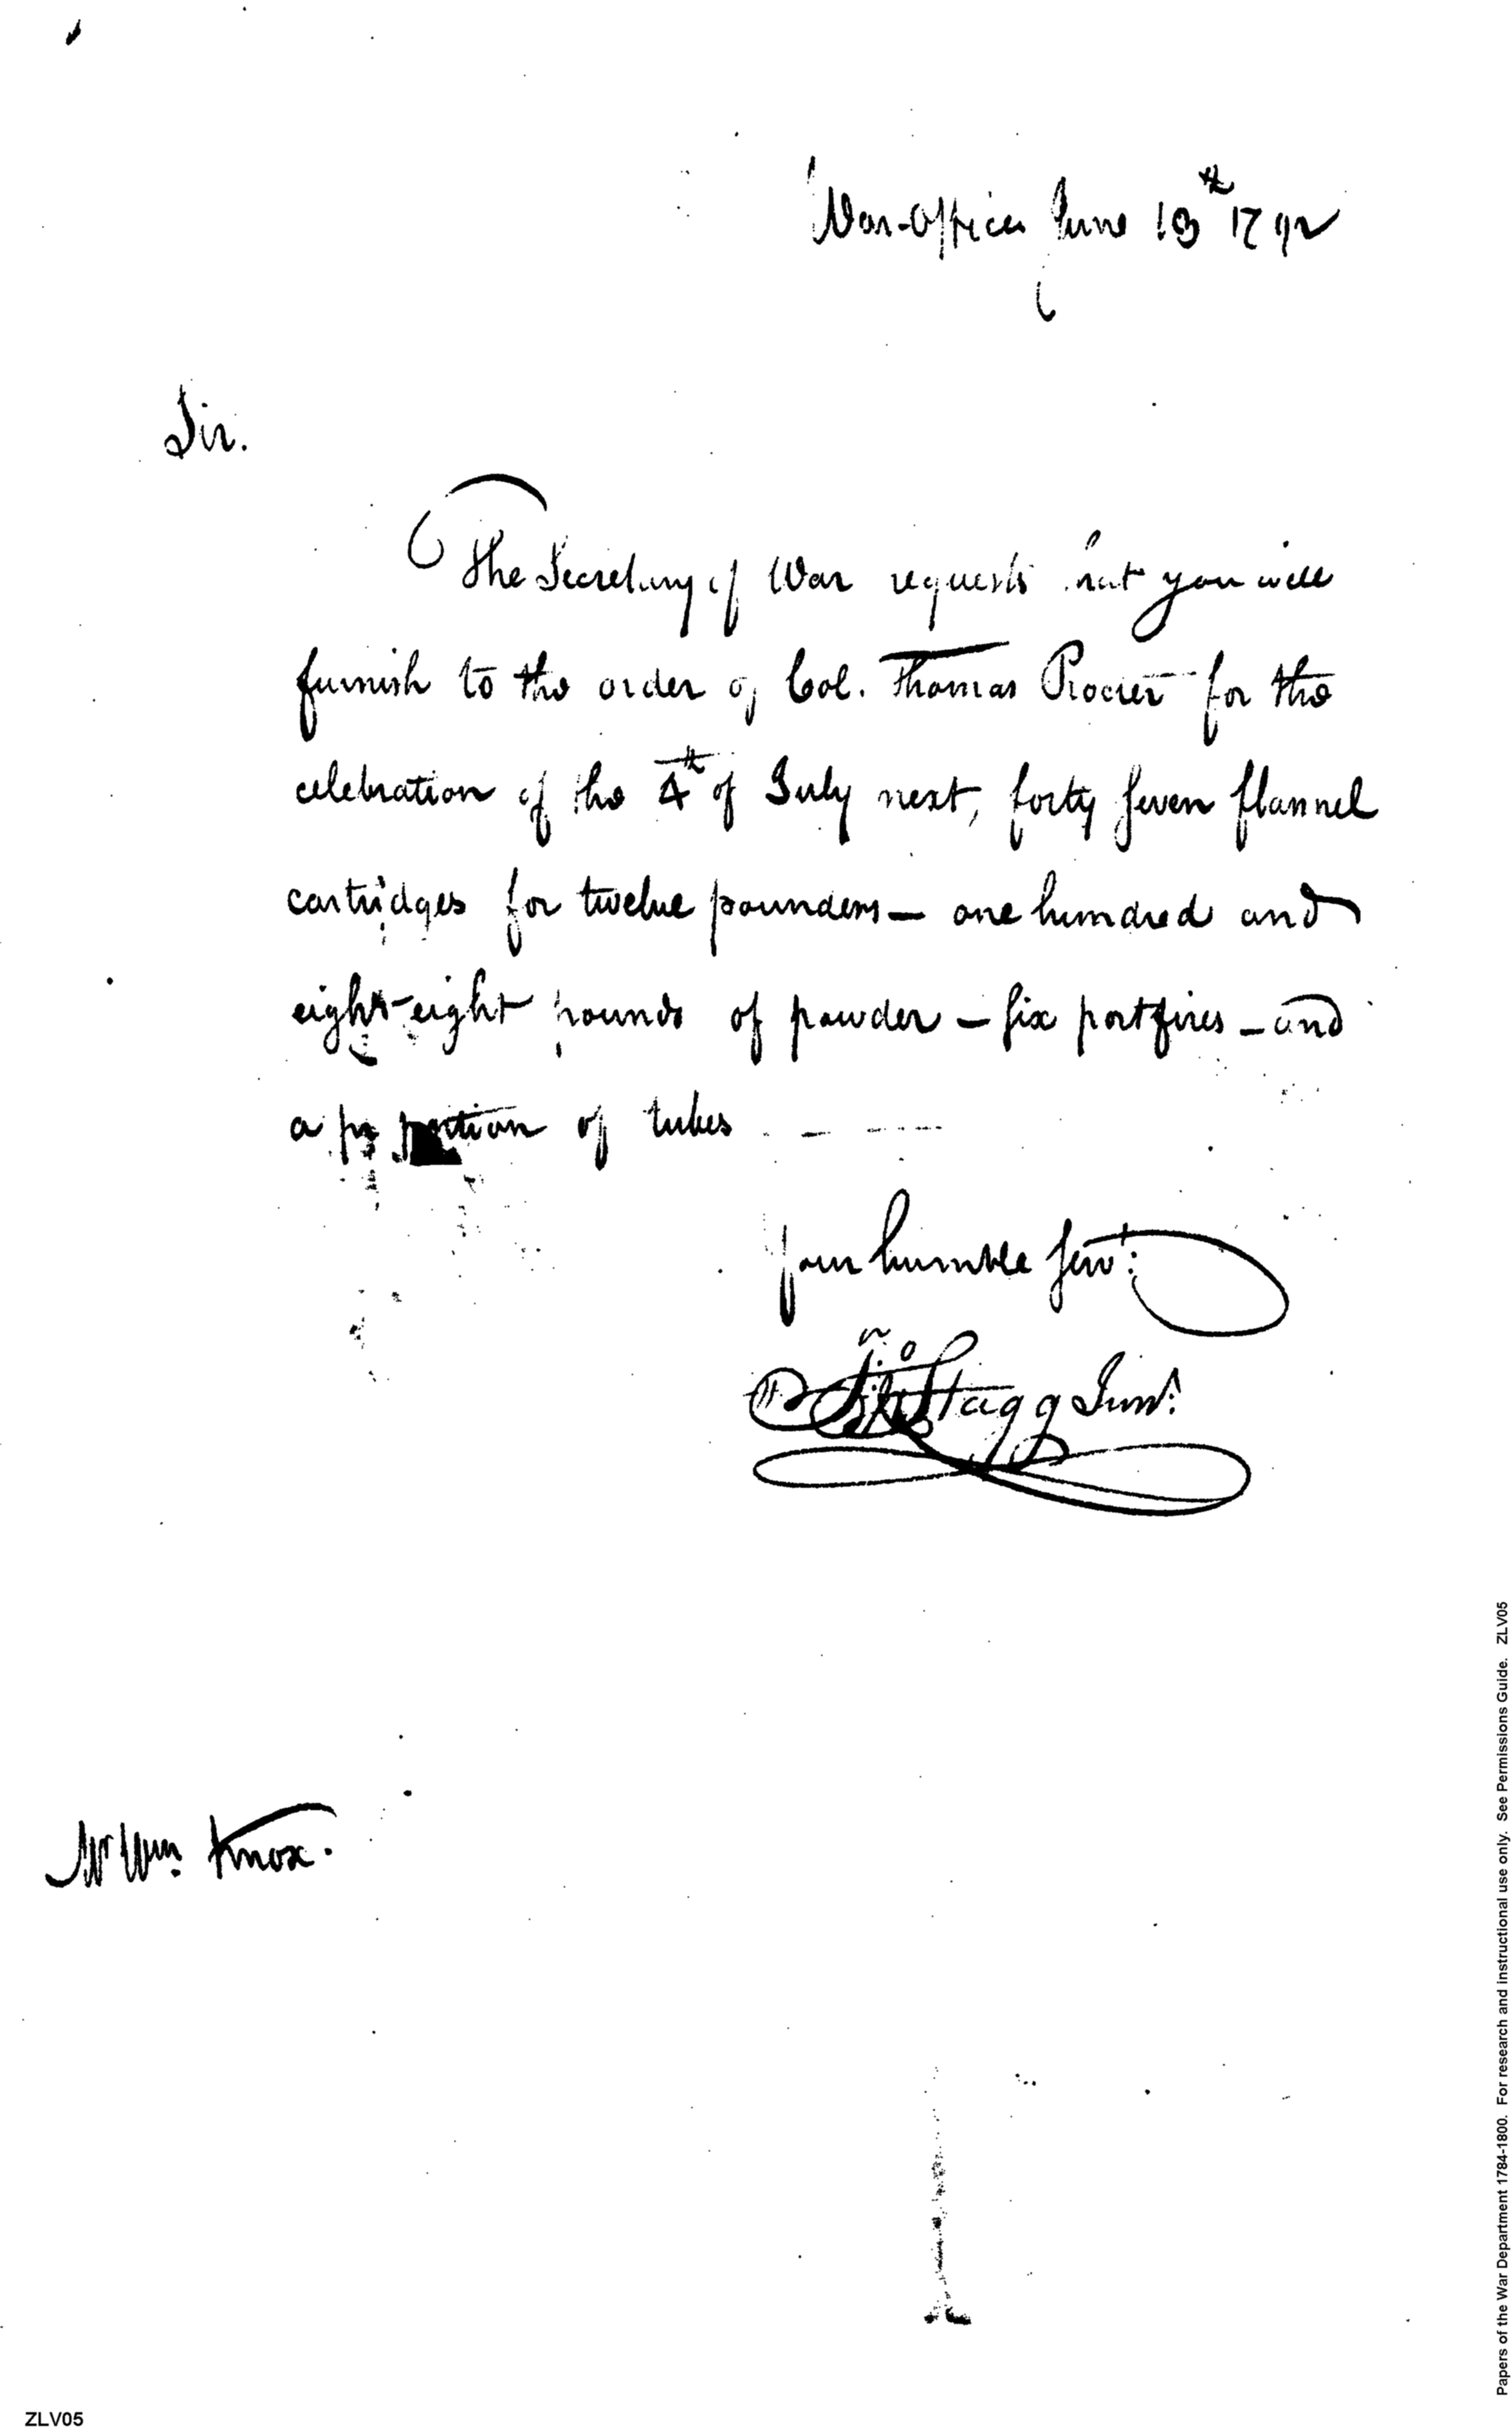 War-Office June 13th 1792
Sir.
The Secretary of War requests that you will
furnish to the order of Col. Thomas Procter for the
celebration of the 4th of July next, forty seven flannel
cartridges for twelve pounders — one hundred and
eight-eight pounds of powder — six portfires — and
a proportion of tubes
your humble servt:
Jno Stagg Junr:
Mr Wm. Knox.
ZLV05
Papers of the War Department 1784-1800. For research and instructional use only. See Permissions Guide. ZLV05